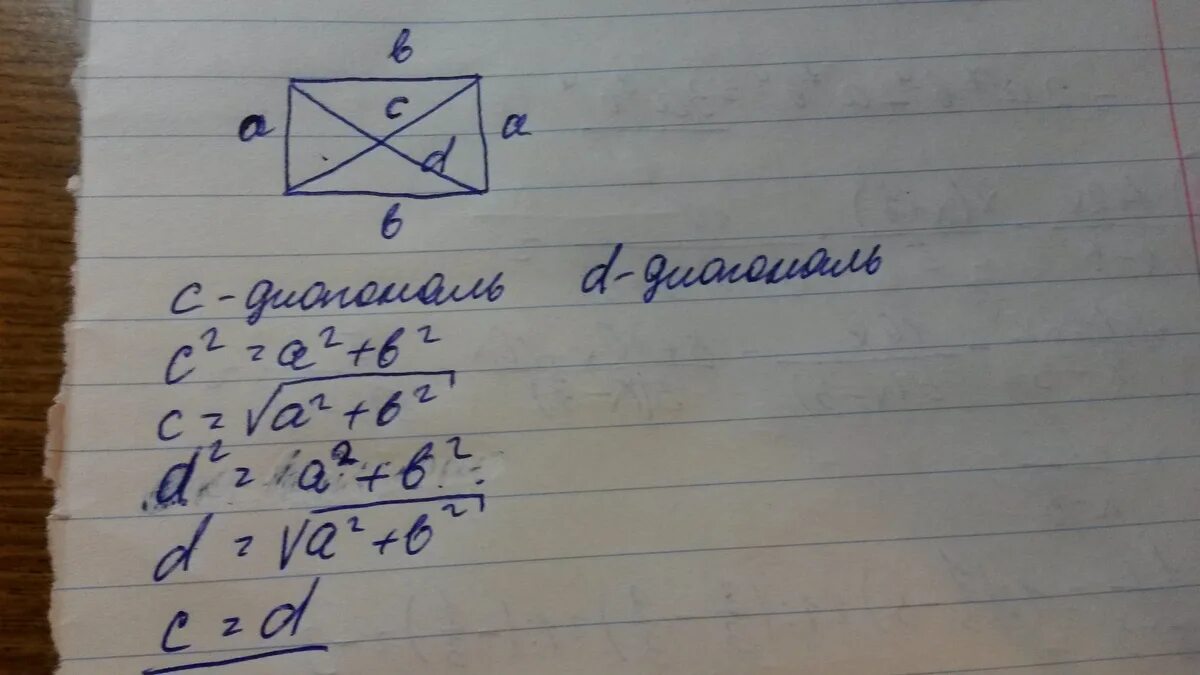 в
a c a
d
в
c - диагональ d - диагональ
c² = a² + в²
c = √a² + в²
d² = a² + в²
d = √a² + в²
c = d